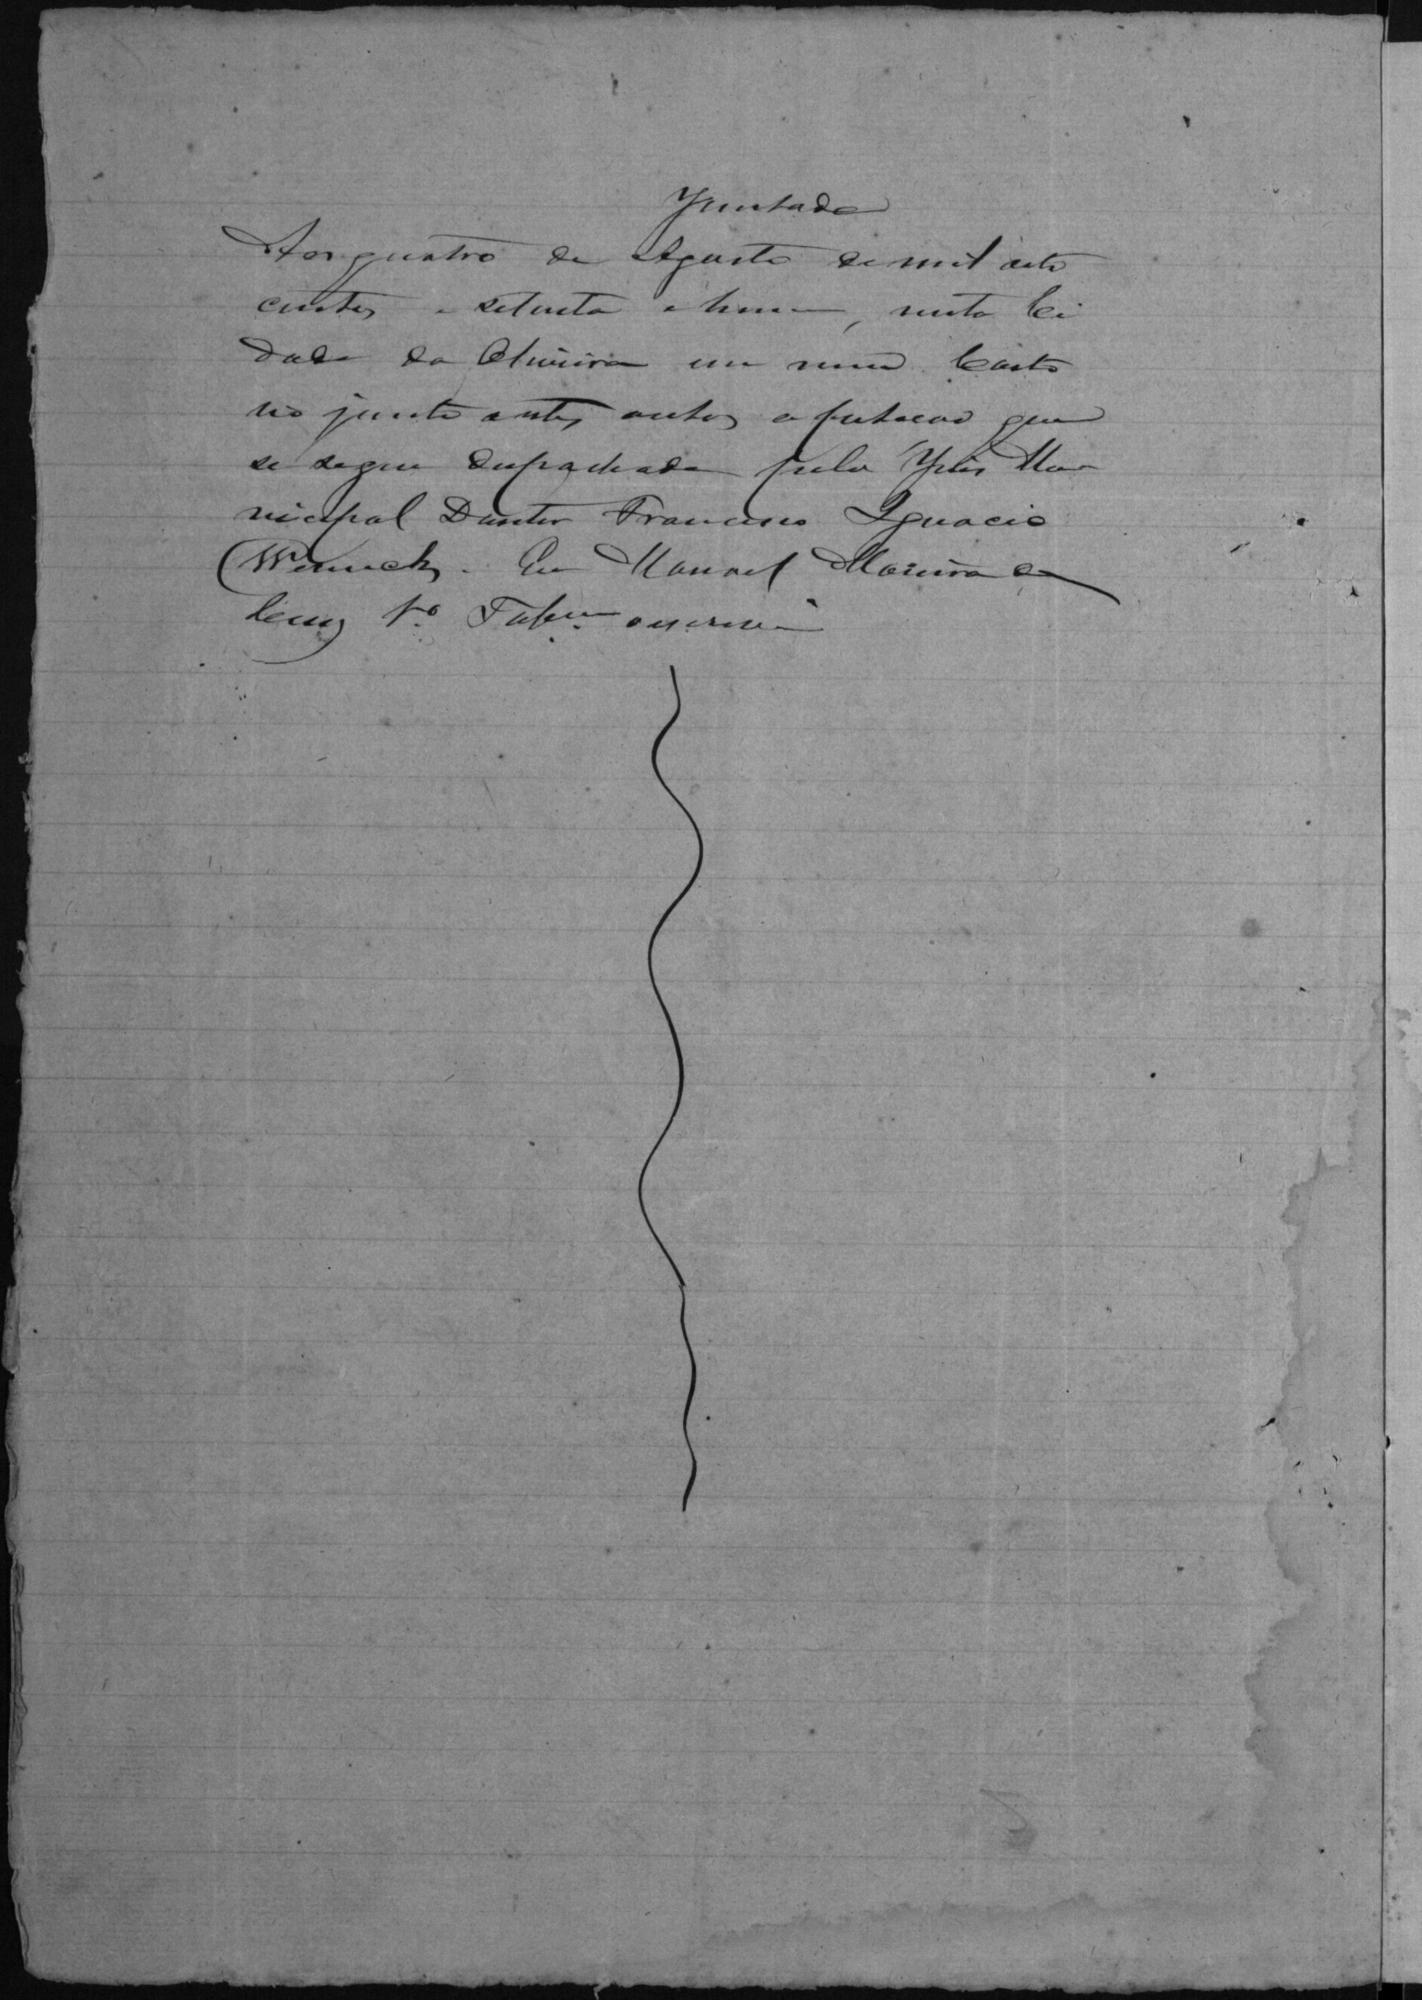 Juntada
Aos quatro de Agosto de mil oito
centos e setenta e hum, nesta Ci
dade da Oliveira em meu Carto
rio junto a estes autos a peticao que
se segue despachada pelo Juis Mu
nicipal Doutor Francisco Ignacio
Werneck. Eu Manoel Moreira da
Cruz 1º Tab.am escrevi